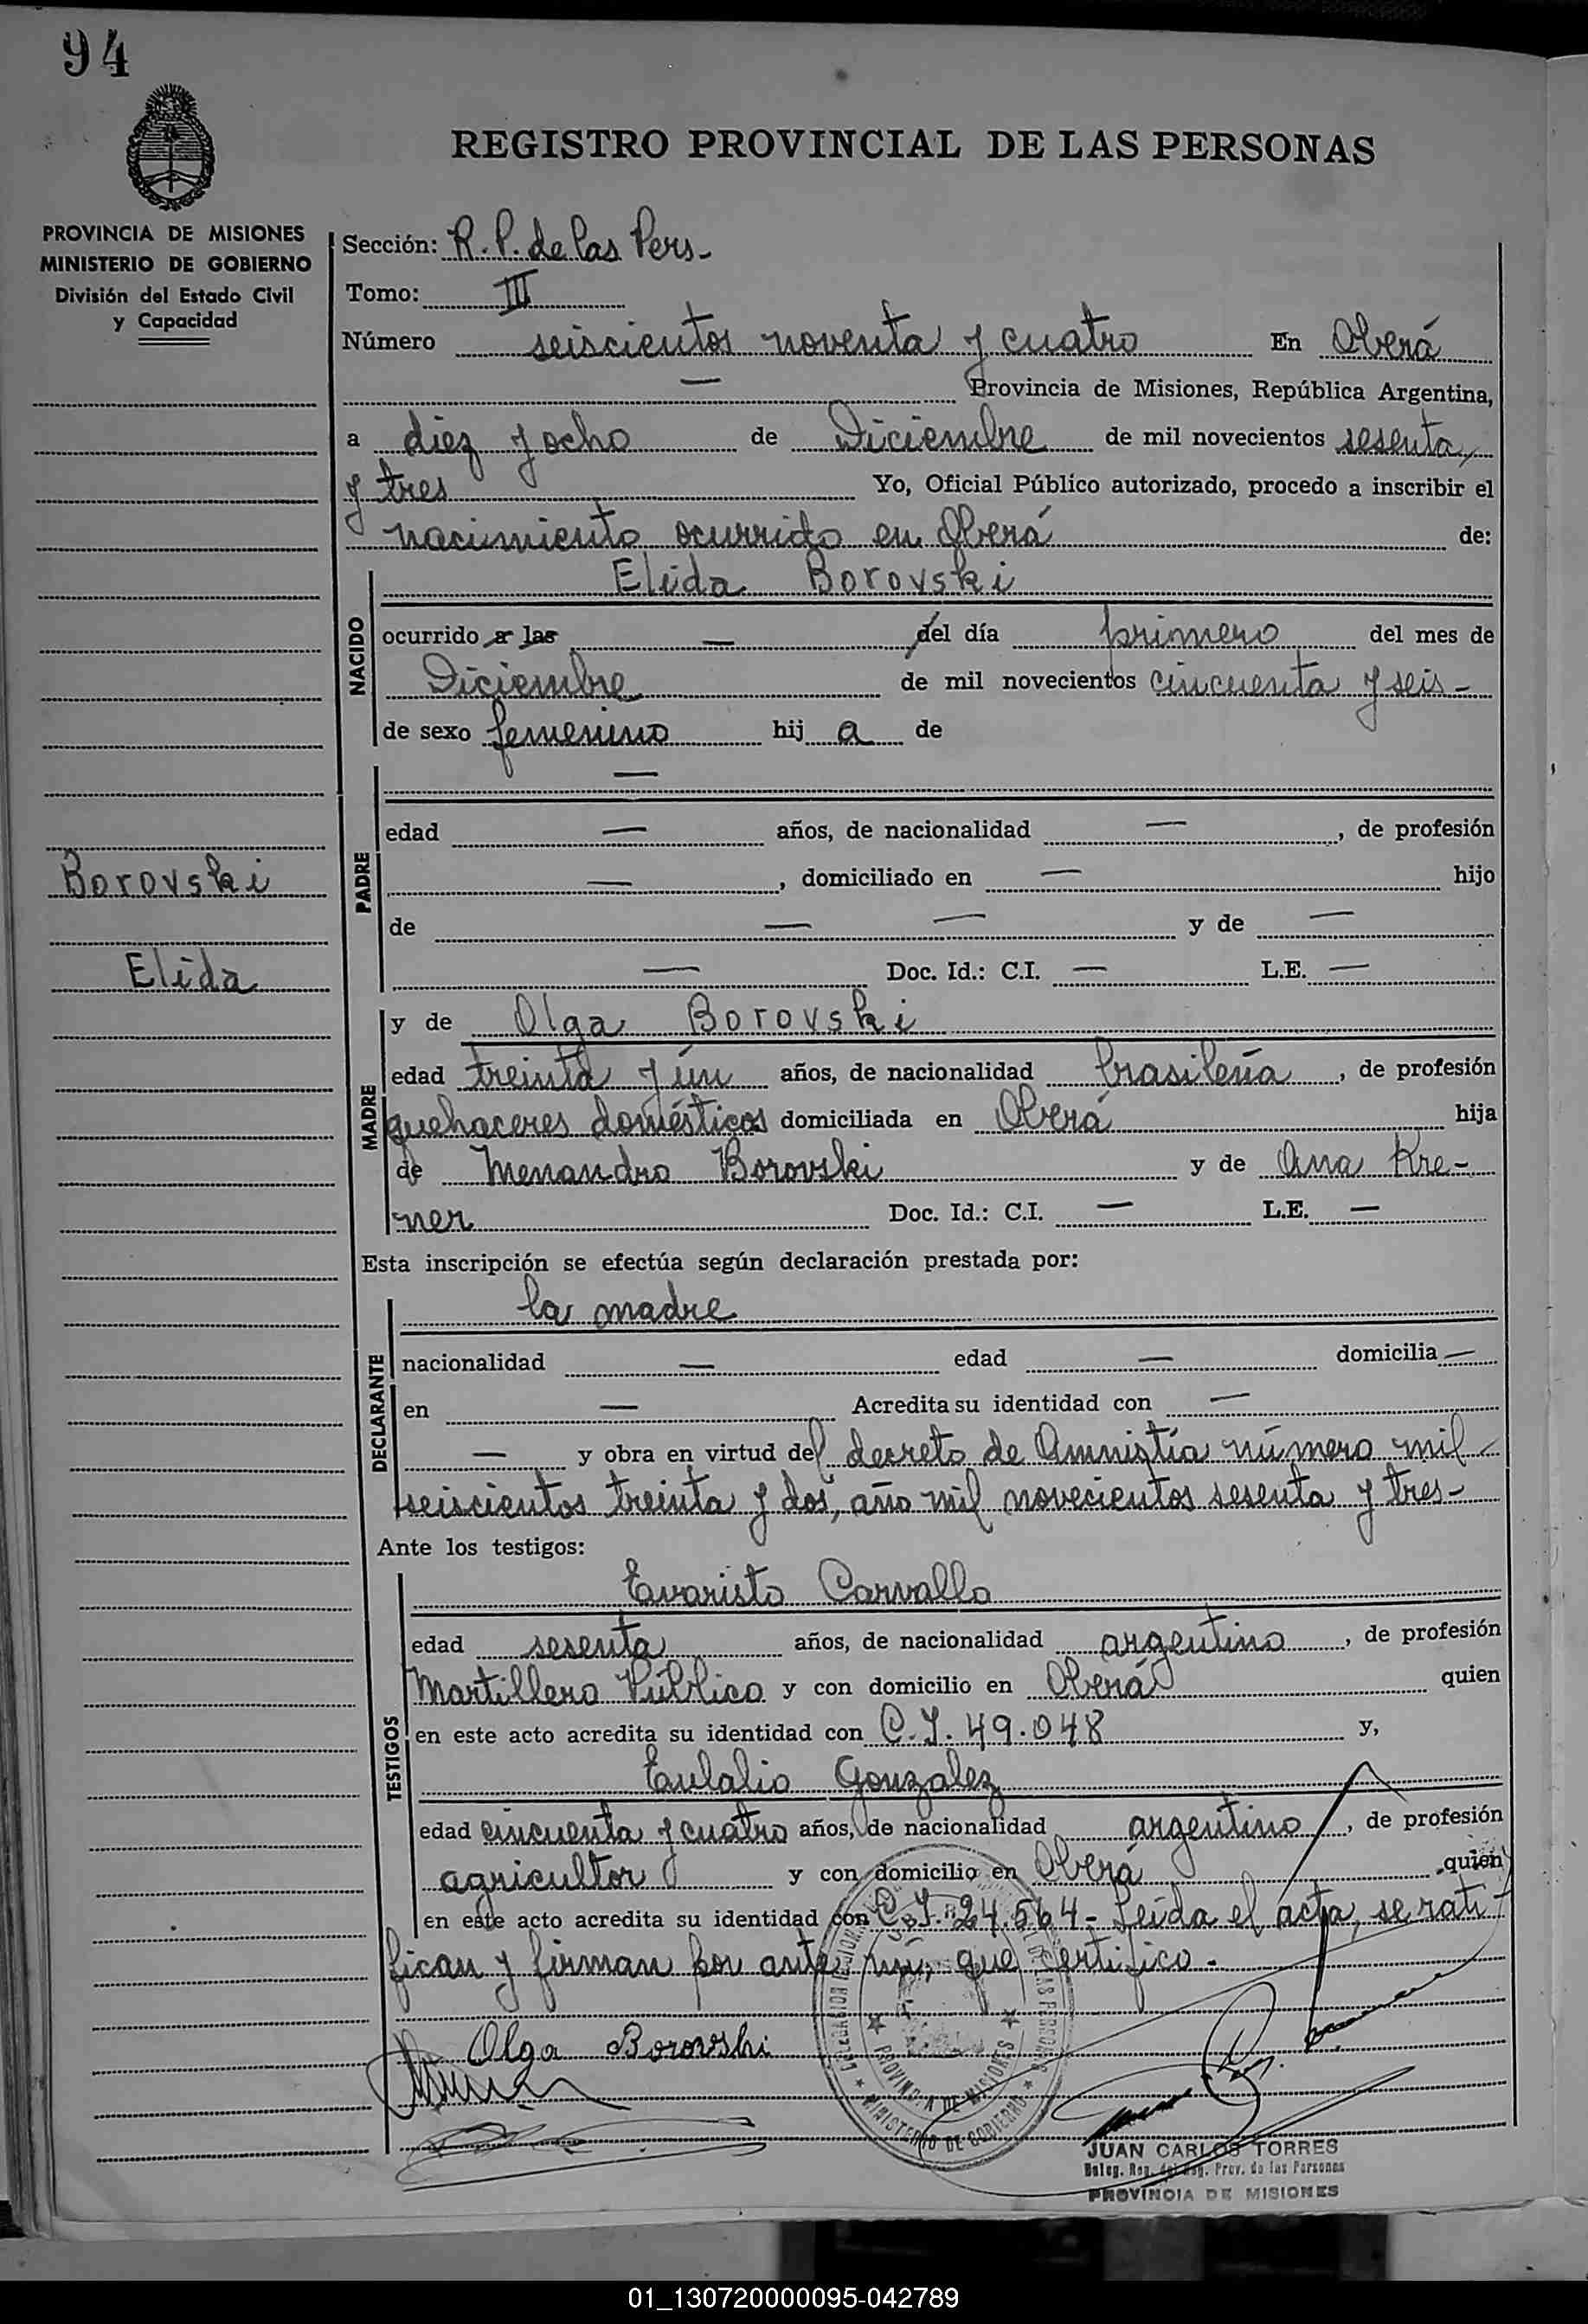 94
REGISTRO PROVINCIAL DE LAS PERSONAS
PROVINCIA DE MISIONES
MINISTERIO DE GOBIERNO
División del Estado Civil
y Capacidad
Sección: R. P. de las Pers-
Tomo: III
Número seiscientos noventa y cuatro En Oberá
— Provincia de Misiones, República Argentina,
a diez y ocho de Diciembre de mil novecientos sesenta
y tres Yo, Oficial Público autorizado, procedo a inscribir el
nacimiento ocurrido en Oberá de:
Elida Borovski
NACIDO
ocurrido a las — del día primero del mes de
Diciembre de mil novecientos cincuenta y seis -
de sexo femenino hij a de
—
PADRE
edad — años, de nacionalidad —, de profesión
—, domiciliado en — hijo
de — — y de —
— Doc. Id.: C.I. — L.E. —
Borovski
Elida
MADRE
y de Olga Borovski
edad treinta y ún años, de nacionalidad brasileña, de profesión
quehaceres domésticos domiciliada en Oberá hija
de Menandro Borovski y de Ana Kre-
ner Doc. Id.: C.I. — L.E. —
Esta inscripción se efectúa según declaración prestada por:
DECLARANTE
la madre
nacionalidad — edad — domicilia —
en — Acredita su identidad con —
— y obra en virtud del decreto de Amnistía número mil
seiscientos treinta y dos, año mil novecientos sesenta y tres-
Ante los testigos:
TESTIGOS
Evaristo Carvallo
edad sesenta años, de nacionalidad argentino, de profesión
Martillero Público y con domicilio en Oberá quien
en este acto acredita su identidad con C.I. 49.048 y,
Eulalio Gonzalez
edad cincuenta y cuatro años, de nacionalidad argentino, de profesión
agricultor y con domicilio en Oberá quien
en este acto acredita su identidad con C.I. 24.564- Leída el acta, se rati-
fican y firman por ante mí, que certifico.
Olga Borovski
PROVINCIA DE MISIONES
MINISTERIO DE GOBIERNO
JUAN CARLOS TORRES
Deleg. Reg. del Reg. Prov. de las Personas
PROVINCIA DE MISIONES
01_130720000095-042789